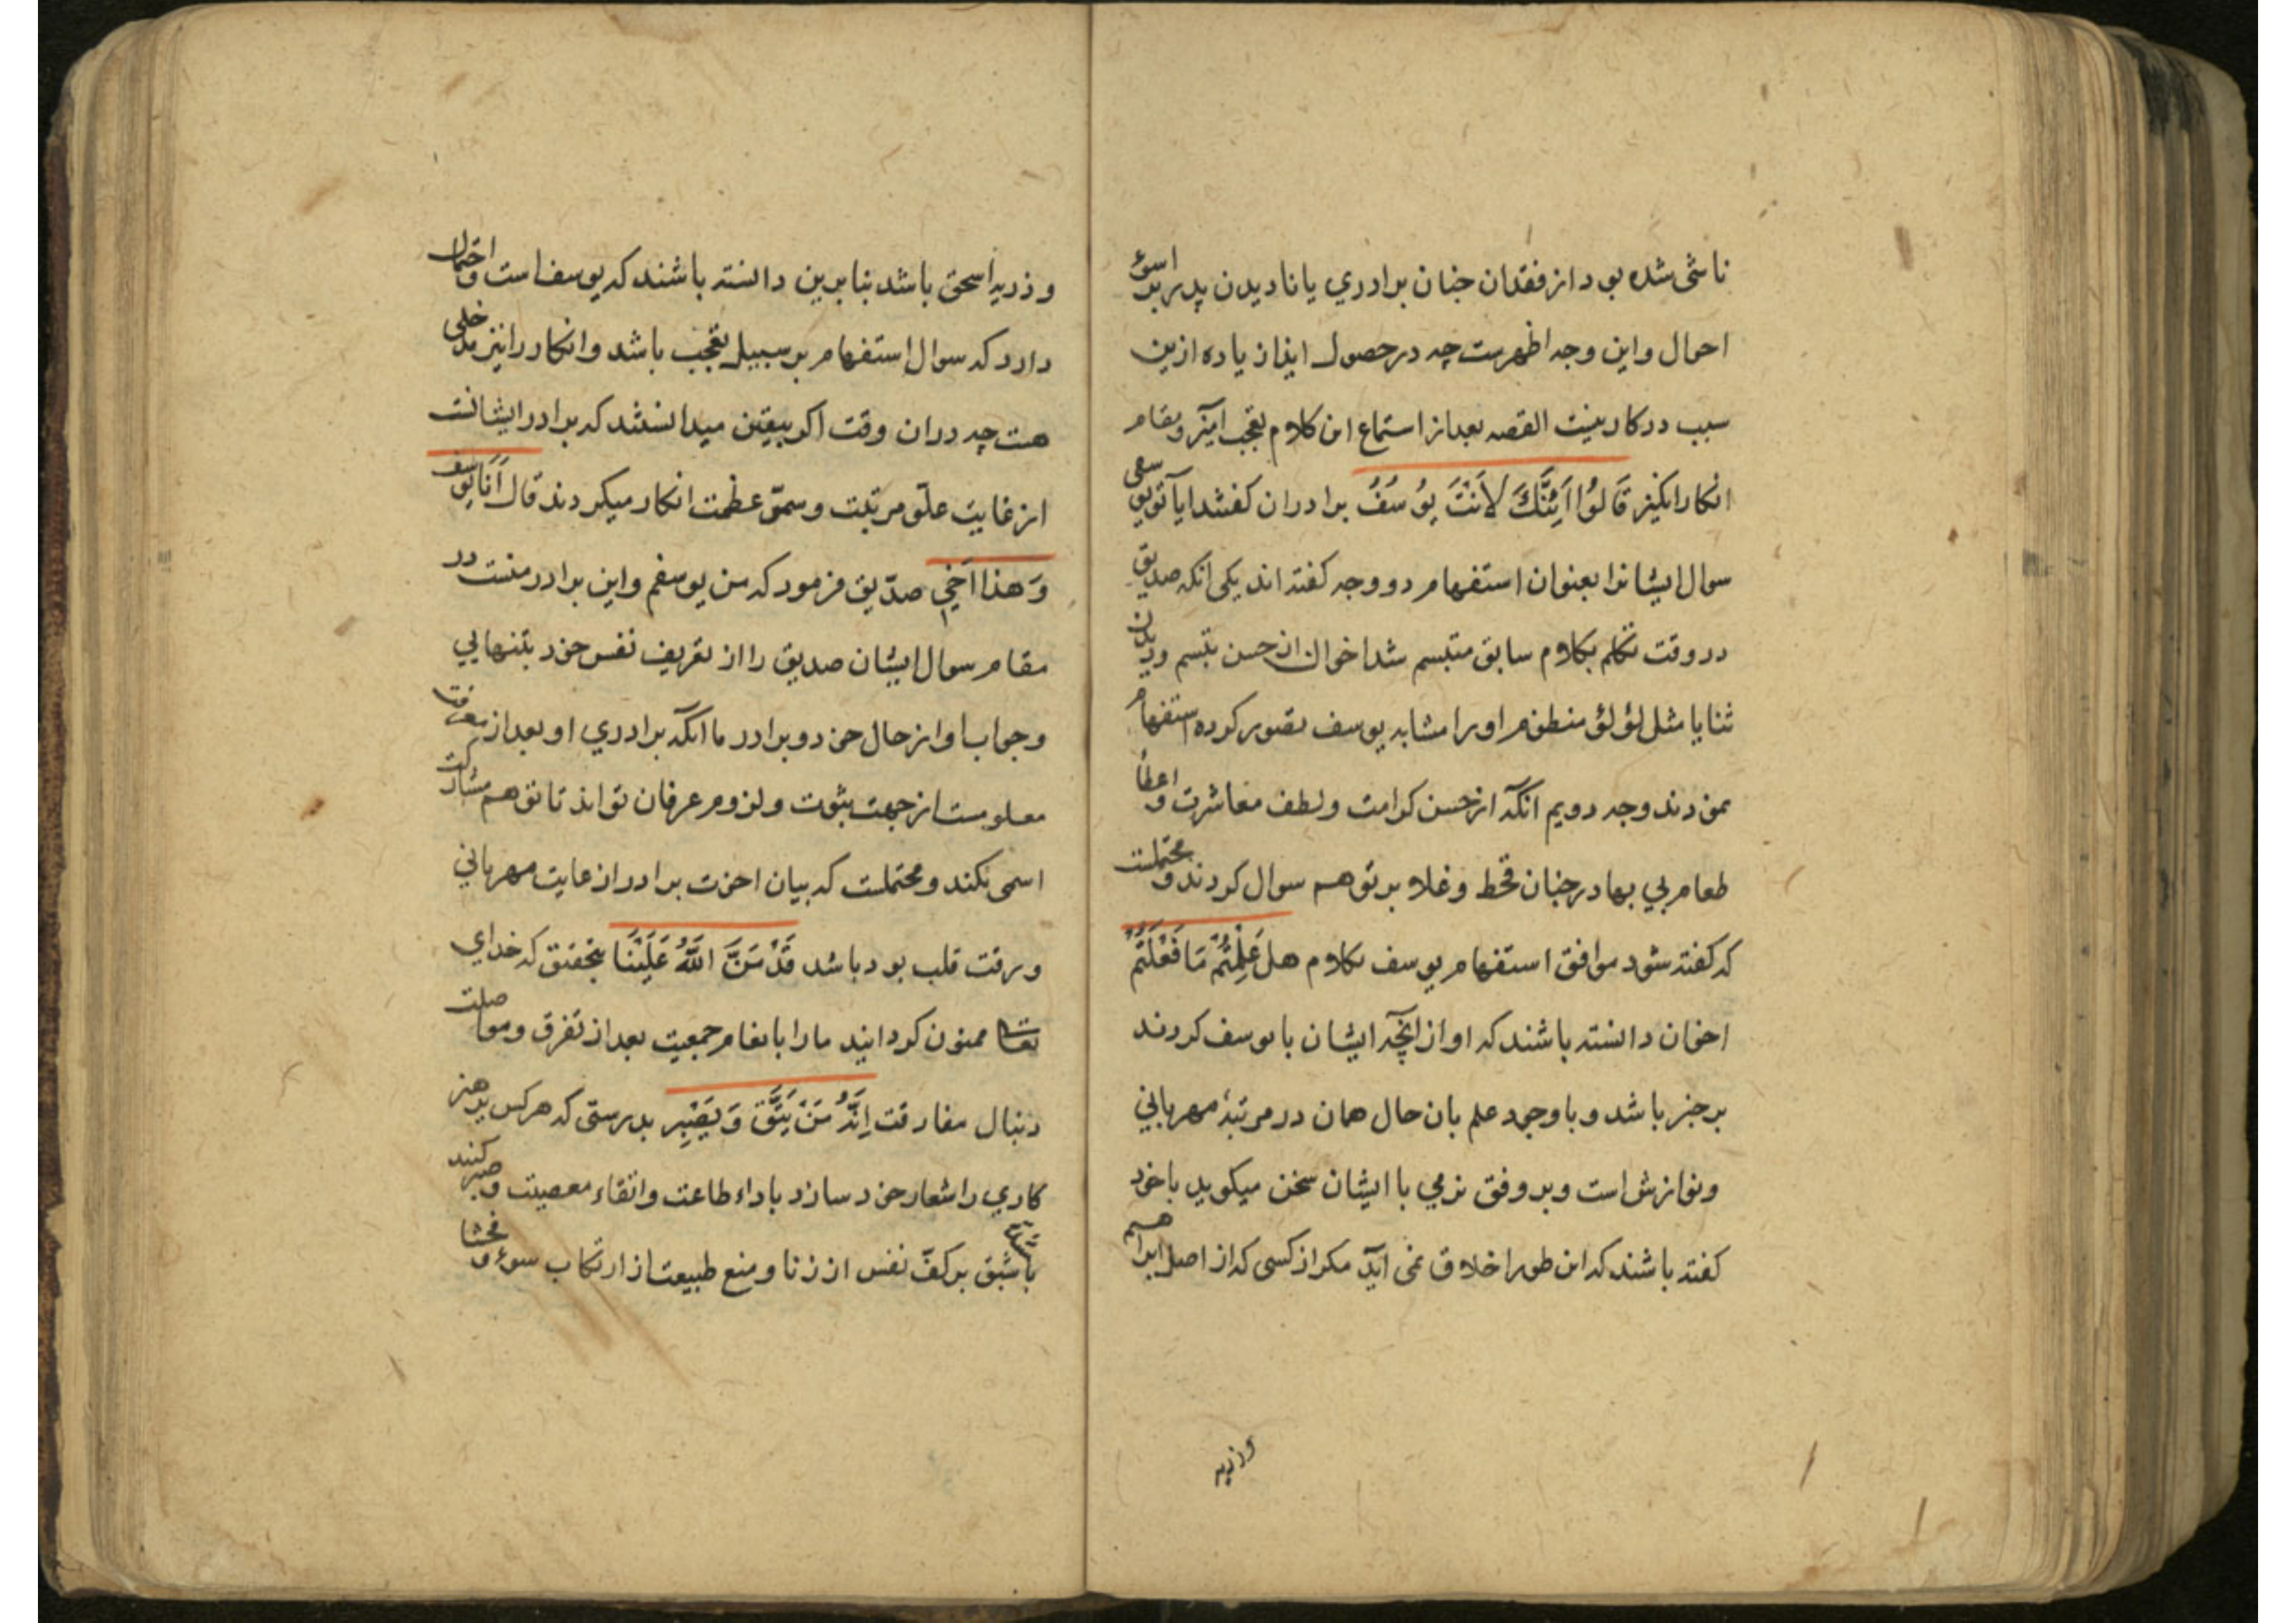 ناشی شده بود از فقدان چنان برادری یا نادیدن پدر بر اسوء
احوال و این وجه اظهرست چه در حصول ایذا زیاده ازین
سبب در کار نیست القصه بعد از استماع این کلام تعجب آمیز و مقام
انکار انگیز قَالُوا اَئِنَّكَ لَاَنْتَ يُوسُفُ برادران کفتند ایا تویی
سوال ایشانرا بعنوان استفهام دو وجه کفته اند یکی انکه صدیق
در وقت تکلم بکلام سابق متبسم شد اخوان از حسن تبسم و دیدن
ثنایا مثل لؤلؤ منظوم او را مشابه یوسف تصور کرده استفهام
نمودند وجه دویم آنکه از حسن کرامت و لطف معاشرت و اعطاء
طعام بی بها در چنان قحط و غلا بر توهم سوال کردند و محتملست
که کفته شود موافق استفهام یوسف بکلام هل عَلِمْتُمْ مَا فَعَلْتُمْ
اخوان دانسته باشند که او از آنچه ایشان با یوسف کردند
بر خبر باشد و با وجود علم بان حال همان در مرتبهٔ مهربانی
و نوازش است و بر وفق نرمی با ایشان سخن میکوید با خود
کفته باشند که این طور اخلاق نمی آید مکر از کسی که از اصل ابراهیم
و ذریه
و ذریه اسحق باشد بنا برین دانسته باشند که یوسف است و احتمال
دارد که سوال استفهام بر سبیل تعجب باشد و انکار را نیز مدخلی
هست چه در ان وقت اکر بیقین میدانستند که برادر ایشانست
از غایت علوّ مرتبت و سموّ عظمت انکار میکردند قال اَنَا يوسف
وَ هذا اَخي صدّیق فرمود که من یوسفم و این برادر منست در
مقام سوال ایشان صدیق را از تعریف نفس خود بتنهایی
و جواب او از حال خود و برادر با آنکه برادری او بعد از معرفت
معلومست از جهت ثبوت و لزوم عرفان تواند تا توهم مشارکت
اسمی نکند و محتملست که بیان اخوت برادر از غایت مهربانی
و رقت قلب بود باشد قَدْ مَنَّ اللّٰهُ عَلَيْنَا بتحقیق که خدای
تعالی ممنون کردانید ما را بانعام جمعیت بعد از تفرق و مواصلت
دنبال مفارقت اِنَّهُ مَنْ يَتَّقِ وَ يَصْبِر بدرستی که هر کس پرهیز
کاری را شعار خود سازد باداء طاعت و اتقاء معصیت و صبر کنند
بر کفّ نفس از زنا و منع طبیعت از ارتکاب سوء و فحشا